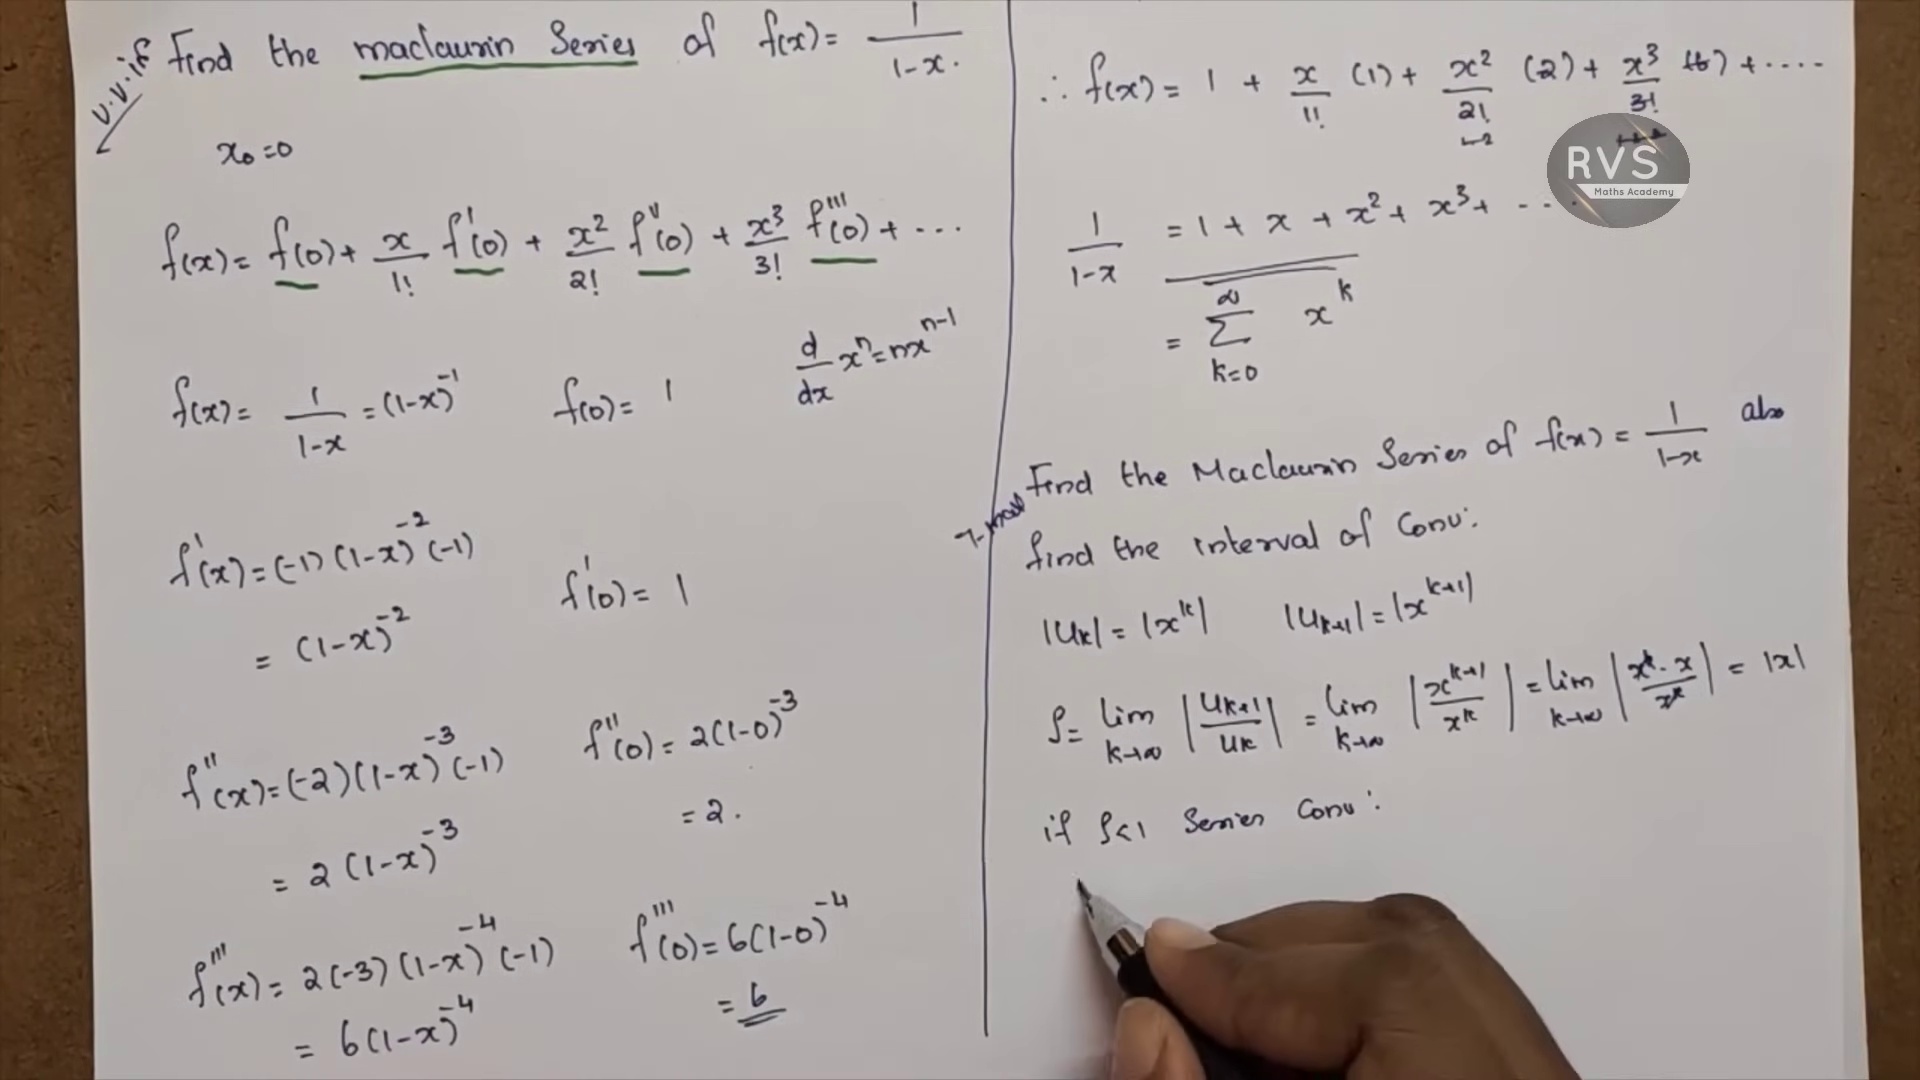 v.v.if Find the maclaurin Series of f(x) = 1/1-x.
x₀=0
f(x) = f(0) + x/1! f'(0) + x²/2! f''(0) + x³/3! f'''(0) + ...
d/dx xⁿ = nxⁿ⁻¹
f(x) = 1/1-x = (1-x)⁻¹ f(0) = 1
f'(x) = (-1) (1-x)⁻² (-1)
= (1-x)⁻² f'(0) = 1
f''(x) = (-2)(1-x)⁻³ (-1) f''(0) = 2(1-0)⁻³
= 2 (1-x)⁻³ = 2.
f'''(x) = 2(-3) (1-x)⁻⁴ (-1) f'''(0) = 6(1-0)⁻⁴
= 6(1-x)⁻⁴ = 6
∴ f(x) = 1 + x/1! (1) + x²/2! (2) + x³/3! (6) + ....
RVS
Maths Academy
1/1-x = 1 + x + x² + x³ + ...
= ∑ k=0 ∞ xᵏ
Find the Maclaurin Series of f(x) = 1/1-x also
find the interval of Conv:
|Uk| = |xᵏ| |Uk+1| = |xᵏ⁺¹|
ρ = lim k→∞ |Uk+1/Uk| = lim k→∞ |xᵏ⁺¹/xᵏ| = lim k→∞ |xᵏ.x/xᵏ| = |x|
if ρ<1 Series Conv: